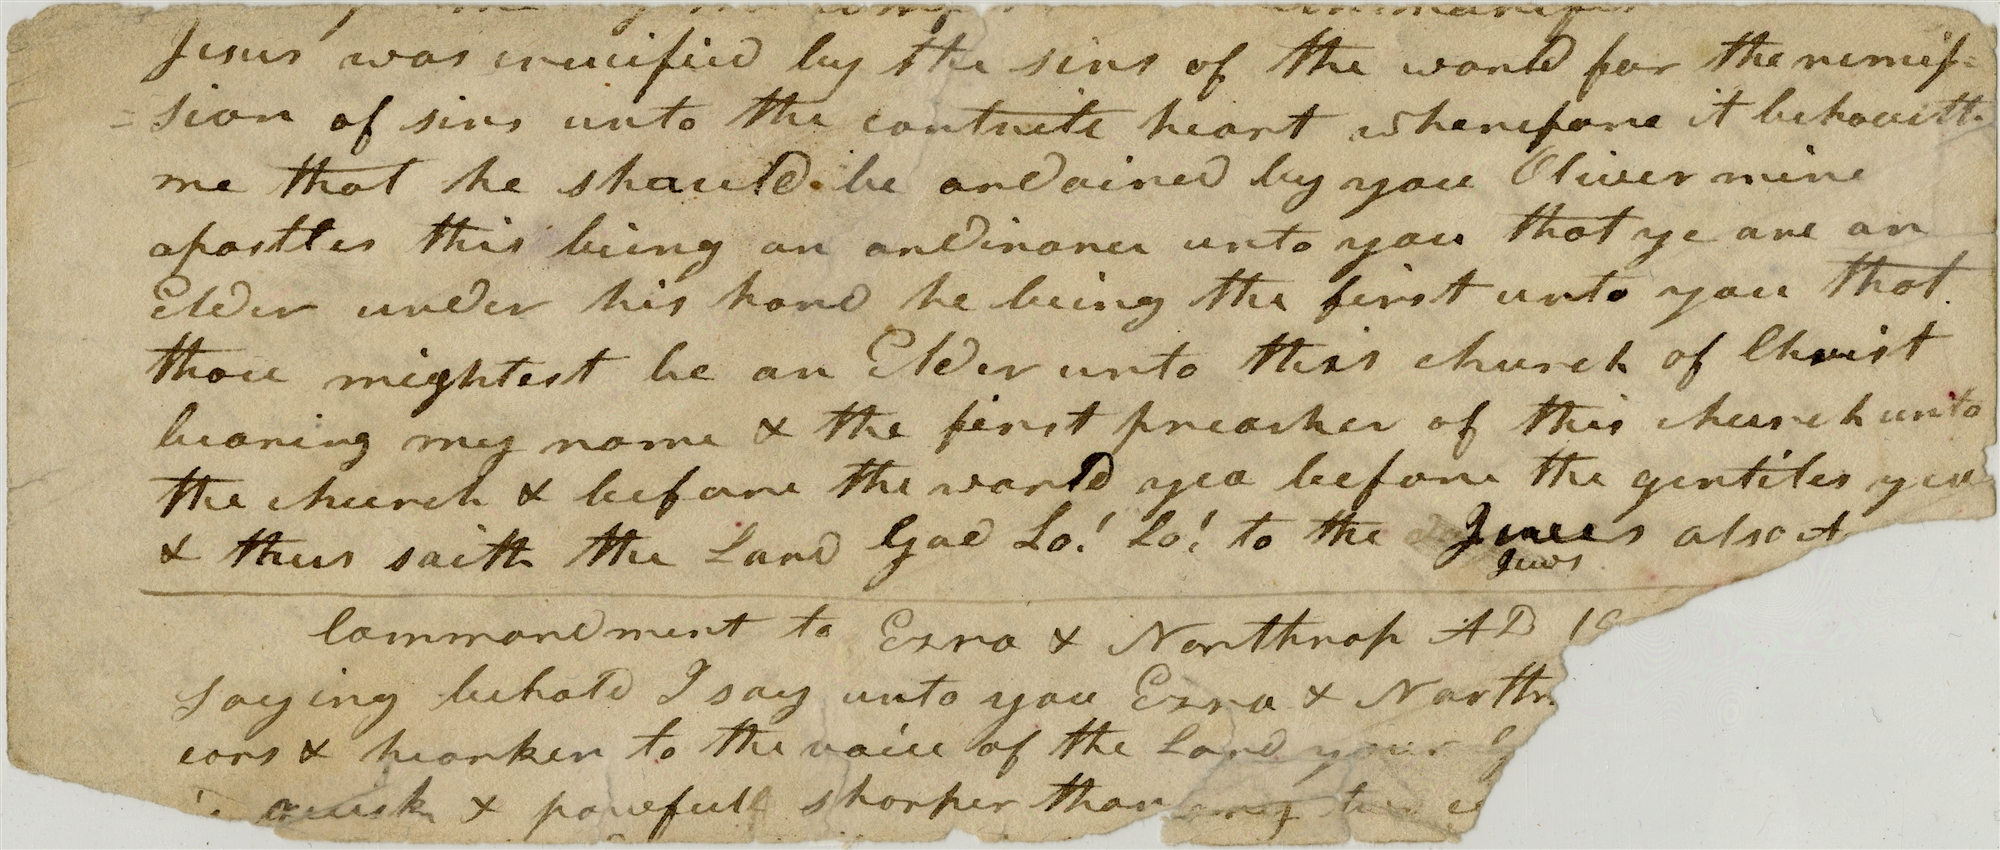 Jesus was crucified by the sins of the world for the remis=
=sion of sins unto the contrite heart wherefore it behooveth
me that he should be ordained by you Oliver mine
apostles this being an ordinance unto you that ye are an
Elder under his hand he being the first unto you that
thou mightest be an Elder unto this church of Christ
bearing my name & the first preacher of this church unto
the church & before the world yea before the gentiles yea
& thus saith the Lord God Lo! Lo! to the Jews also A
Jews
Commandment to Ezra & Northrop AD 1
saying behold I say unto you Ezra & Northr
ears & hearken to the voice of the Lord your G
quick & powefull sharper than any two e